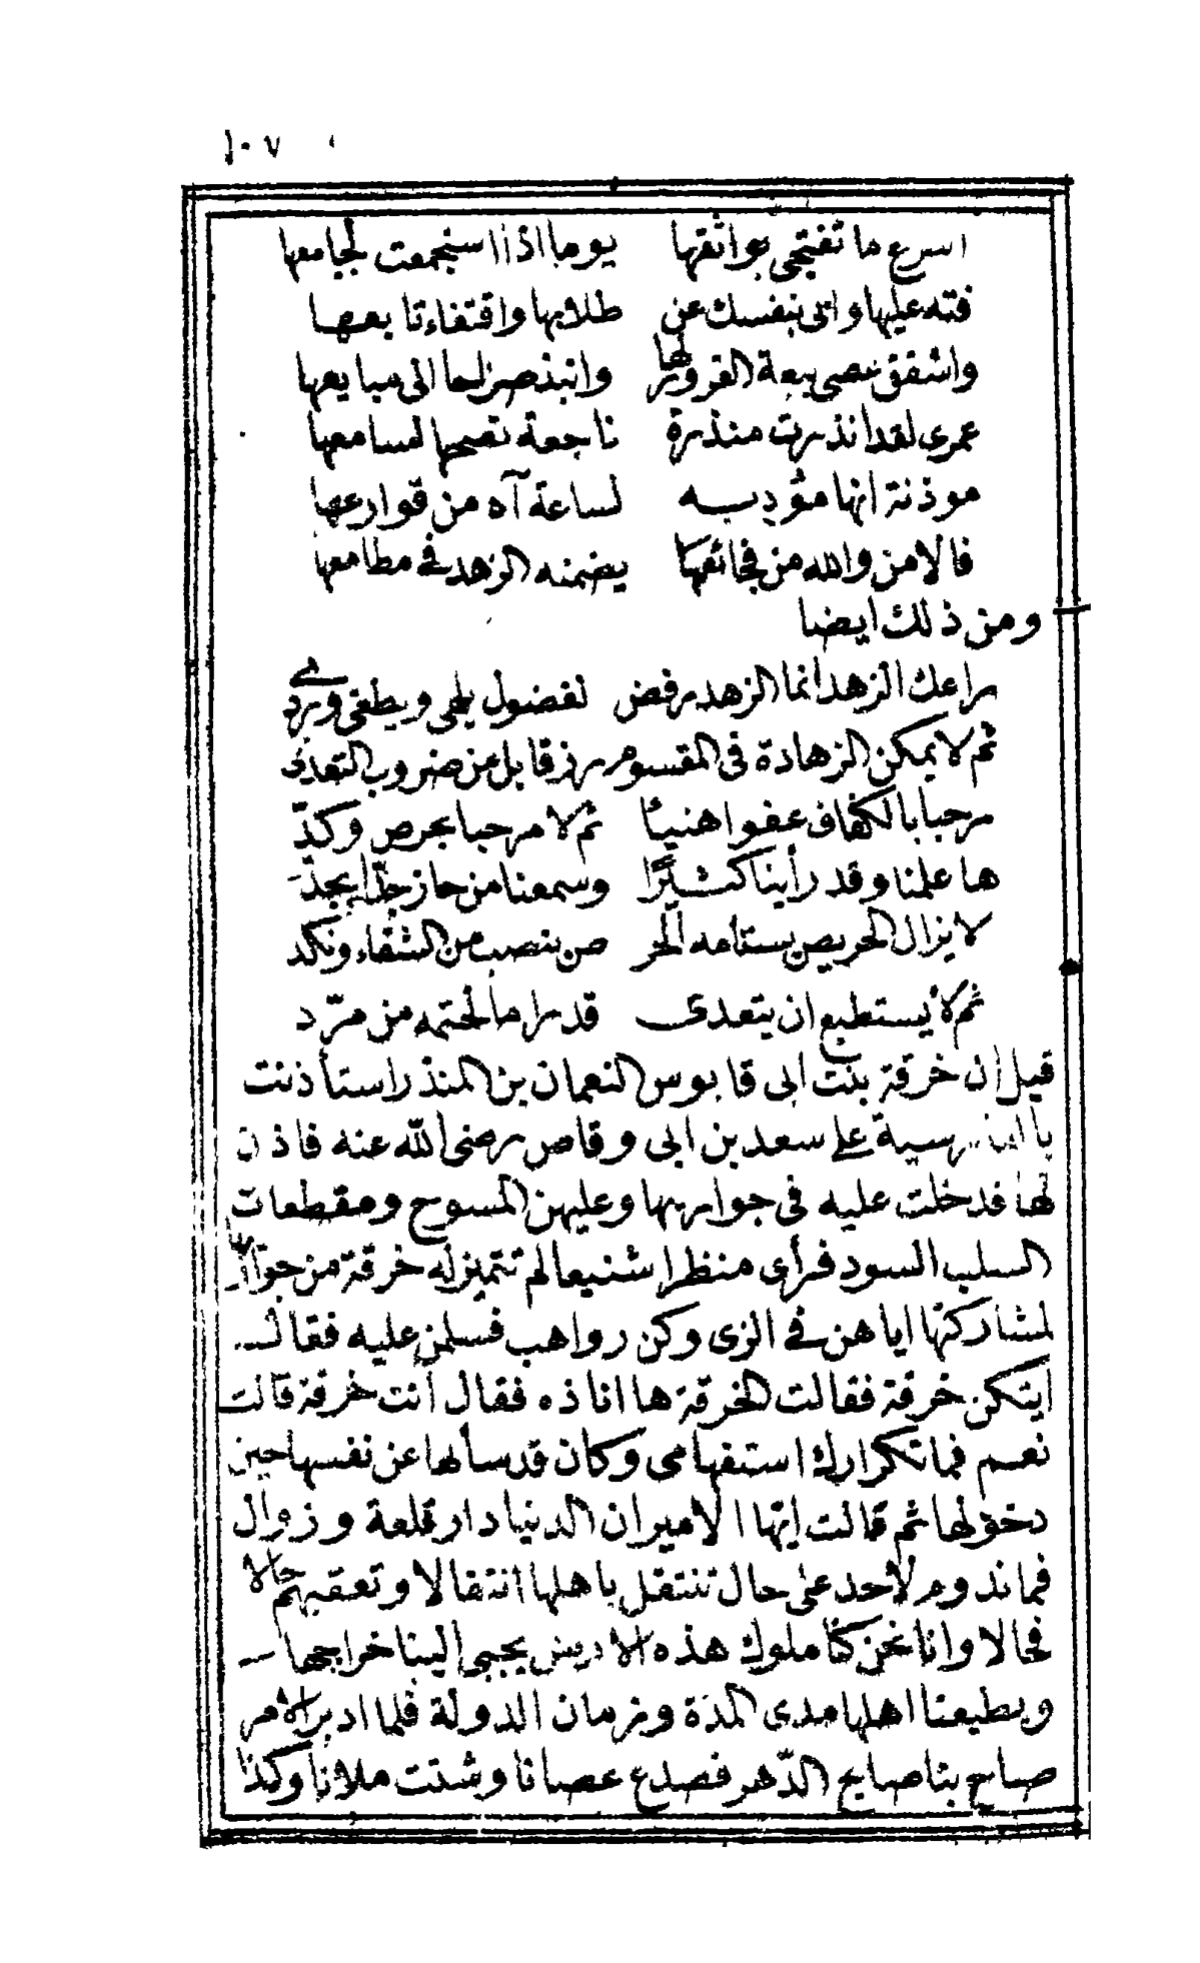 ١٠٧
اسرع ما تفتجى بوائقها يوما اذا استجمعت لجامعها
فته عليها واتلى بنفسك عن طلابها واقتفاء تابعها
واشفق من بيعة الغرور لها وانبذ الى مبايعها
عمرى لقد انذرت منذرة ناجعة نصحها لسامعها
موذنة انها مؤدية لساعة آه من قوارعها
فالامن والله من فجائعها يضمنه الزهد فى مطامعها
ومن ذلك ايضا
راعك الزهد انما الزهد رفض لفضول يلهى ويطغى ويردى
ثم لا يمكن الزهادة فى المقسوم رزقا بل من ضروب التعدى
مرحبا بالكفاف عفوا هنيئا ثم لا مرحبا بحرص وكدّ
ها علمنا وقد رأينا كثيرًا وسمعنا من حاز جدّا بجدّ
لا يزال الحريص يستامه الحر ص بنصب من الشقاء ونكد
ثم لا يستطيع ان يتعدى قدرا ما لحتمه من مردّ
قيل ان خرقة بنت ابى قابوس النعمان بن المنذر استأذنت
بالقادسية على سعد بن ابى وقاص رضى الله عنه فاذن
لها فدخلت عليه فى جواريها وعليهن المسوح ومقطعات
السلب السود فرأى منظرا شنيعا لم تتميز له خرقة من جواريها
لمشاركتها اياهن فى الزى وكن رواهب فسلمن عليه فقال
ايتكن خرقة فقالت الخرقة ها انا ذه فقال أنت خرقة قالت
نعم فما تكرارك استفهامى وكان قد سألها عن نفسها حين
دخولها ثم قالت ايها الامير ان الدنيا دار قلعة وزوال
فما تدوم لأحد على حال تنتقل باهلها انتقالا وتعقبهم حالا
فحالا وانا نحن كنا ملوك هذه الارض يجبى الينا خراجها
ويطيعنا اهلها مدى المدة وزمان الدولة فلما ادبر الامر
صاح بنا صايح الدّهر فصدع عصانا وشتت ملانا وكذا